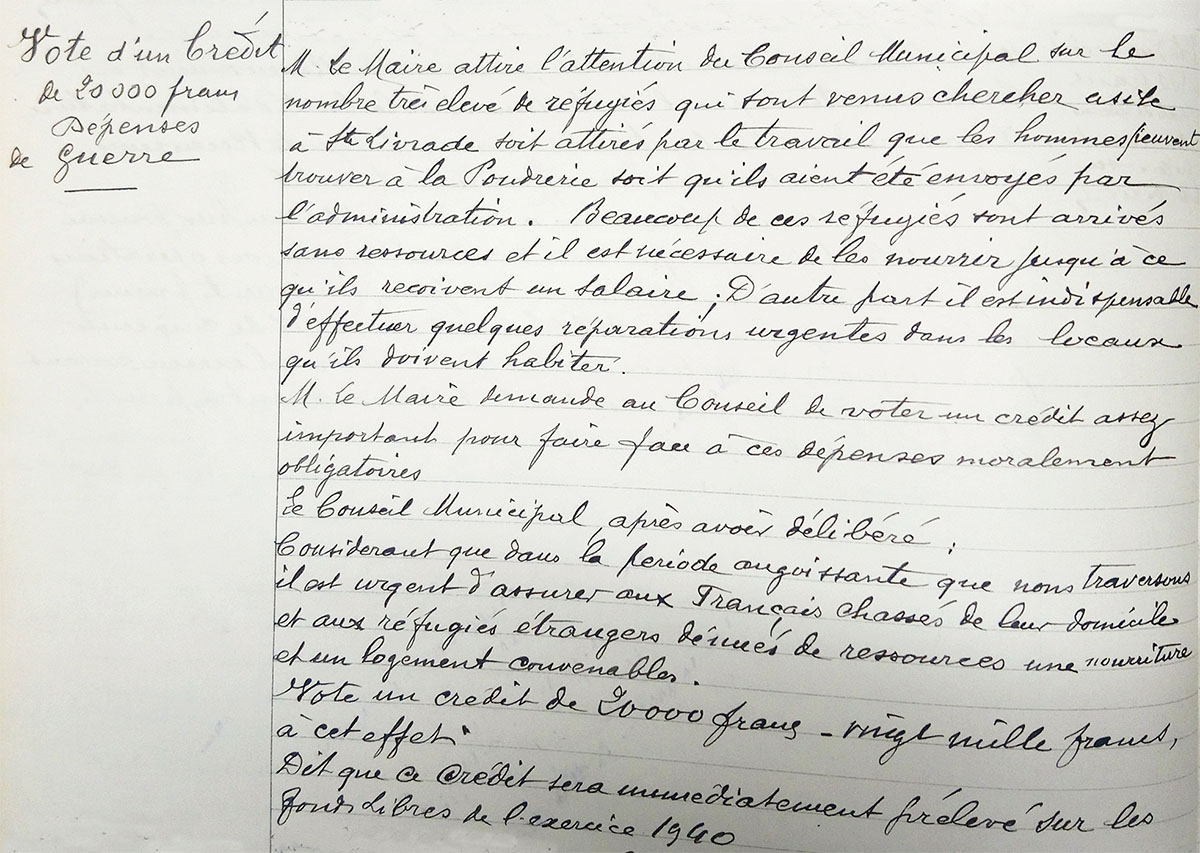 Vote d'un Crédit
de 20000 francs
Dépenses
de Guerre
M. Le Maire attire l'attention du Conseil Municipal sur le
nombre très elevé de réfugiés qui sont venus chercher asile
à Ste Livrade soit attirés par le travail que les hommes peuvent
trouver à la Poudrerie soit qu'ils aient été envoyés par
l'administration. Beaucoup de ces réfugiés sont arrivés
sans ressources et il est nécessaire de les nourrir jusqu'à ce
qu'ils reçoivent un salaire; D'autre part il est indispensable
d'effectuer quelques réparations urgentes dans les locaux
qu'ils doivent habiter.
M. Le Maire demande au Conseil de voter un crédit assez
important pour faire face à ces dépenses moralement
obligatoires
Le Conseil Municipal, après avoir délibéré;
Considerant que dans la période angoissante que nous traversons
il est urgent d'assurer aux Français chassés de leur domicile
et aux réfugiés étrangers dénués de ressources une nourriture
et un logement convenables.
Vote un crédit de 20000 francs - vingt mille francs,
à cet effet.
Dit que ce Crédit sera immediatement prélevé sur les
fonds Libres de l'exercice 1940